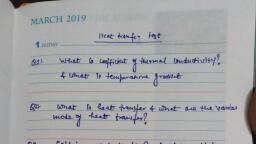 MARCH 2019
Heat transfer test
1
Q1. What is coefficient of thermal conductivity?
& What is temperature gradient
Q2. What is heat transfer & what are the various
mode of heat transfer?